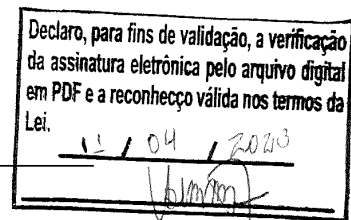 Declaro, para fins de validação, a verificação
da assinatura eletrônica pelo arquivo digital
em PDF e a reconhecço válida nos termos da
Lei.
/ 04 / 2023